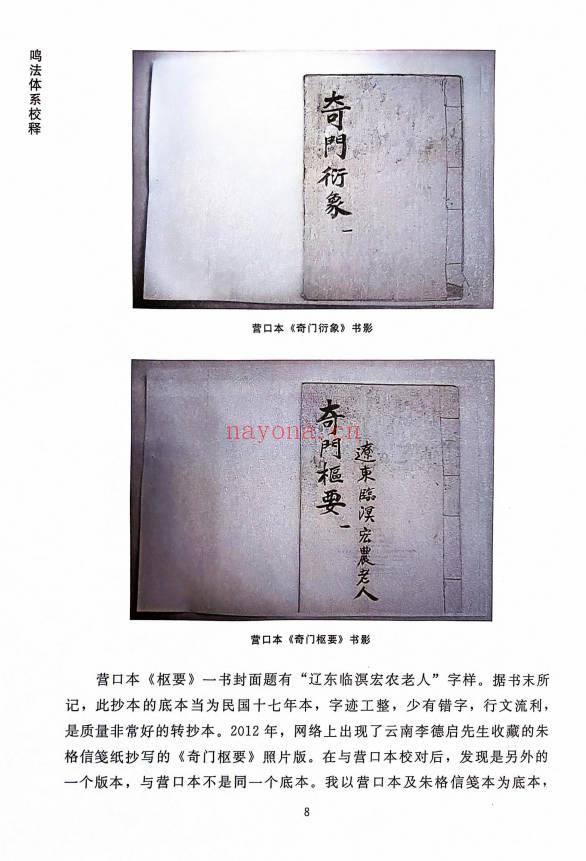 鸣法体系校释
奇門衍象
一
营口本《奇门衍象》书影
奇門樞要
一
遼東臨溟宏農老人
nayona.cn
营口本《奇门枢要》书影
营口本《枢要》一书封面题有“辽东临溟宏农老人”字样。据书末所
记，此抄本的底本当为民国十七年本，字迹工整，少有错字，行文流利，
是质量非常好的转抄本。2012 年，网络上出现了云南李德启先生收藏的朱
格信笺纸抄写的《奇门枢要》照片版。在与营口本校对后，发现是另外的
一个版本，与营口本不是同一个底本。我以营口本及朱格信笺本为底本，
8